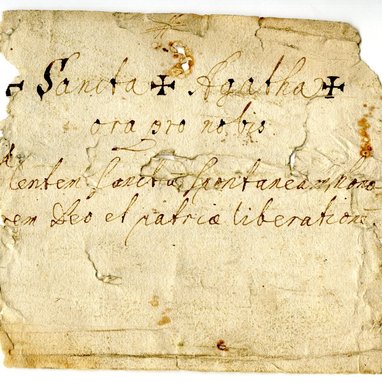 ✠ Sancta ✠ Agatha ✠
ora pro nobis
Mentem Sanctã Spontaneam, hono
rem Deo et patriæ liberationē